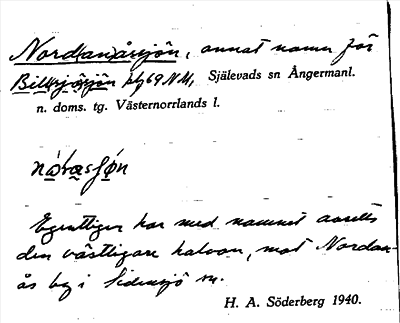 Nord(an)åsjön, annat namn för
Billsjösjön bl. 69 NM, Själevads sn Ångermanl.
n. doms. tg. Västernorrlands l.
Egentligen har med namnet avsetts
den västligare halvan, mot Nordan-
ås by i Sidensjö sn.
H. A. Söderberg 1940.